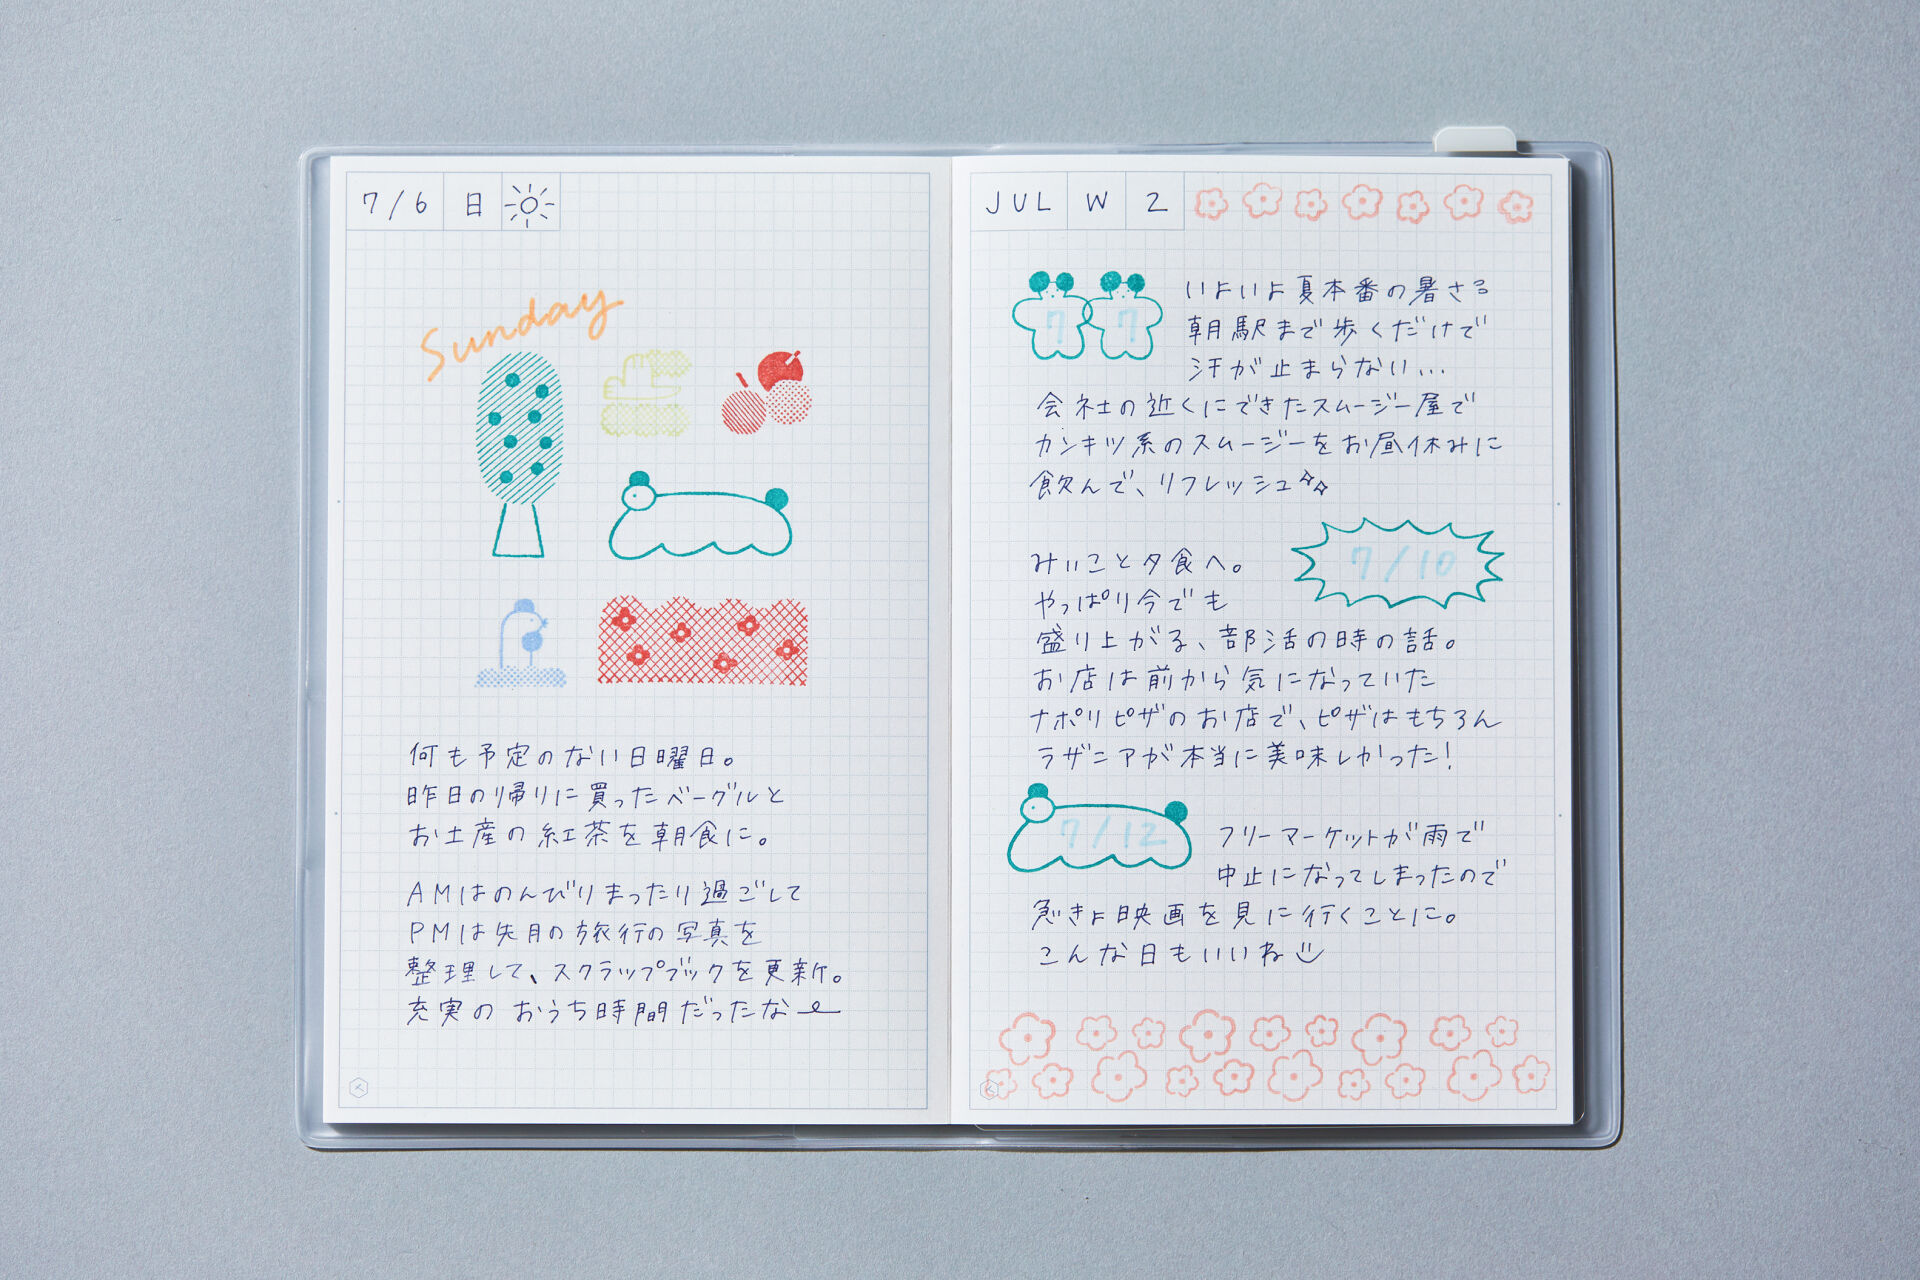 7/6 日
Sunday
何も予定のない日曜日。
昨日の帰りに買ったベーグルと
お土産の紅茶を朝食に。
AMはのんびりまったり過ごして
PMは先月の旅行の写真を
整理して、スクラップブックを更新。
充実のおうち時間だったな
JUL W 2
7 7
いよいよ夏本番の暑さ
朝駅まで歩くだけで
汗が止まらない...
会社の近くにできたスムージー屋で
カンキツ系のスムージーをお昼休みに
飲んで、リフレッシュ
7/10
みいこと夕食へ。
やっぱり今でも
盛り上がる、部活の時の話。
お店は前から気になっていた
ナポリピザのお店で、ピザはもちろん
ラザニアが本当に美味しかった!
7/12
フリーマーケットが雨で
中止になってしまったので
急きょ映画を見に行くことに。
こんな日もいいね